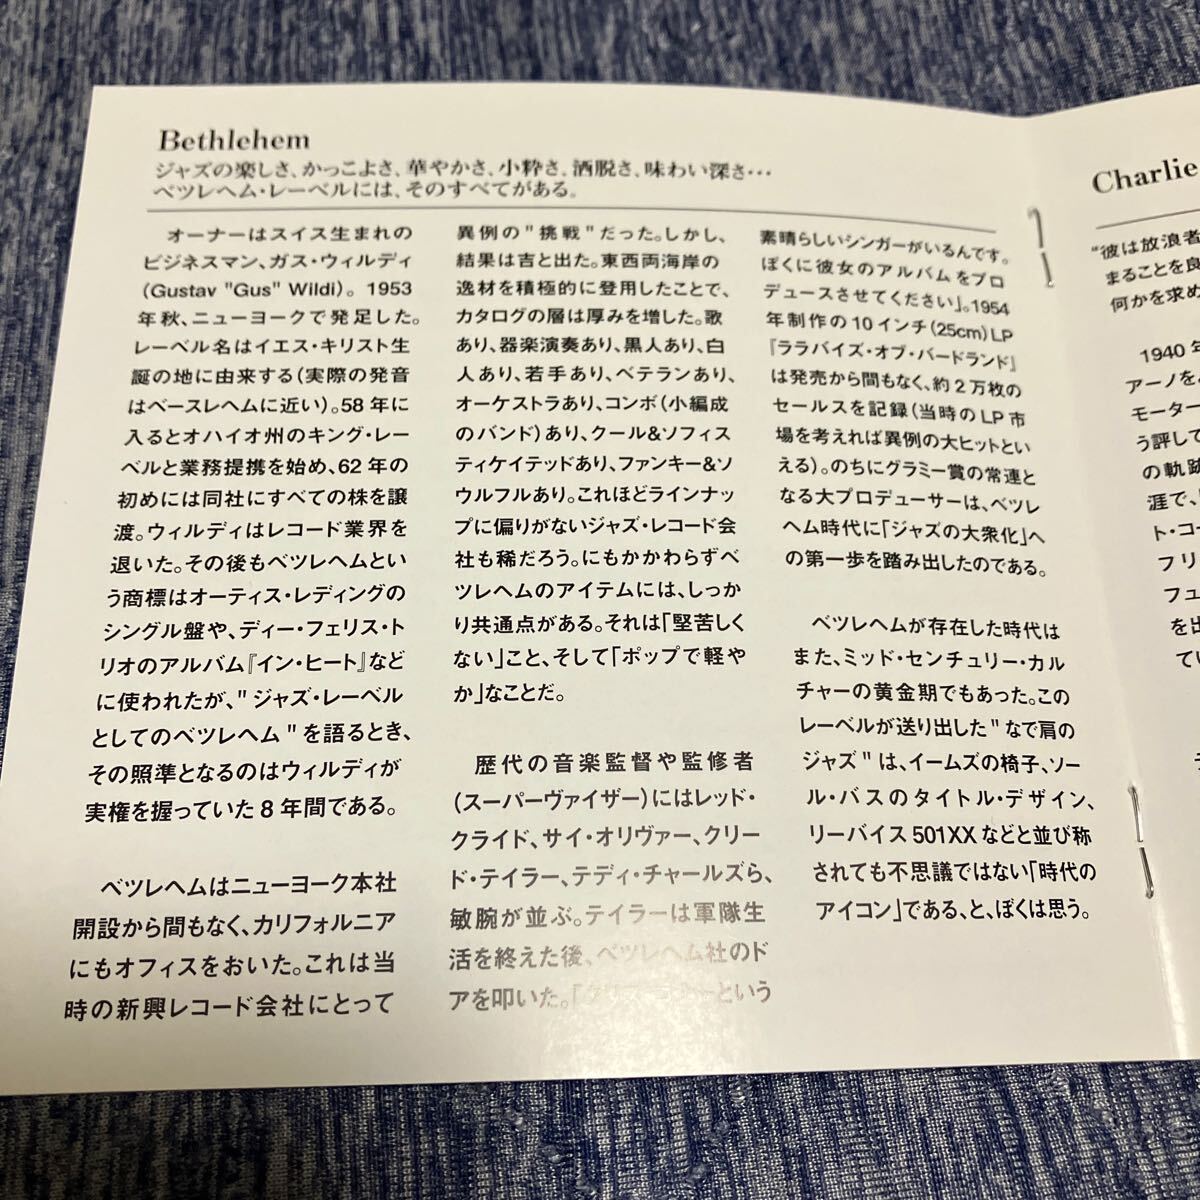 Bethlehem
ジャズの楽しさ、かっこよさ、華やかさ、小粋さ、洒脱さ、味わい深さ…
ベツレヘム・レーベルには、そのすべてがある。
オーナーはスイス生まれの
ビジネスマン、ガス・ウィルディ
(Gustav "Gus" Wildi)。1953
年秋、ニューヨークで発足した。
レーベル名はイエス・キリスト生
誕の地に由来する(実際の発音
はベースレヘムに近い)。58年に
入るとオハイオ州のキング・レー
ベルと業務提携を始め、62年の
初めには同社にすべての株を譲
渡。ウィルディはレコード業界を
退いた。その後もベツレヘムとい
う商標はオーティス・レディングの
シングル盤や、ディー・フェリス・ト
リオのアルバム『イン・ヒート』など
に使われたが、"ジャズ・レーベル
としてのベツレヘム"を語るとき、
その照準となるのはウィルディが
実権を握っていた8年間である。
ベツレヘムはニューヨーク本社
開設から間もなく、カリフォルニア
にもオフィスをおいた。これは当
時の新興レコード会社にとって
異例の"挑戦"だった。しかし、
結果は吉と出た。東西両海岸の
逸材を積極的に登用したことで、
カタログの層は厚みを増した。歌
あり、器楽演奏あり、黒人あり、白
人あり、若手あり、ベテランあり、
オーケストラあり、コンボ(小編成
のバンド)あり、クール&ソフィス
ティケイテッドあり、ファンキー&ソ
ウルフルあり。これほどラインナッ
プに偏りがないジャズ・レコード会
社も稀だろう。にもかかわらずベ
ツレヘムのアイテムには、しっか
り共通点がある。それは「堅苦しく
ない」こと、そして「ポップで軽や
か」なことだ。
歴代の音楽監督や監修者
(スーパーヴァイザー)にはレッド・
クライド、サイ・オリヴァー、クリー
ド・テイラー、テディ・チャールズら、
敏腕が並ぶ。テイラーは軍隊生
活を終えた後、ベツレヘム社のド
アを叩いた。「クリス・コナーという
素晴らしいシンガーがいるんです。
ぼくに彼女のアルバムをプロ
デュースさせてください」。1954
年制作の10インチ(25cm)LP
『ララバイズ・オブ・バードランド』
は発売から間もなく、約2万枚の
セールスを記録(当時のLP市
場を考えれば異例の大ヒットとい
える)。のちにグラミー賞の常連と
なる大プロデューサーは、ベツレ
ヘム時代に「ジャズの大衆化」へ
の第一歩を踏み出したのである。
ベツレヘムが存在した時代は
また、ミッド・センチュリー・カル
チャーの黄金期でもあった。この
レーベルが送り出した"なで肩の
ジャズ"は、イームズの椅子、ソー
ル・バスのタイトル・デザイン、
リーバイス501XXなどと並び称
されても不思議ではない「時代の
アイコン」である、と、ぼくは思う。
Charlie
"彼は放浪者
まることを良
何かを求め
1940年
アーノを
モーター
う評して
の軌跡
涯で、
ト・コー
フリ
フュ
を出
てい